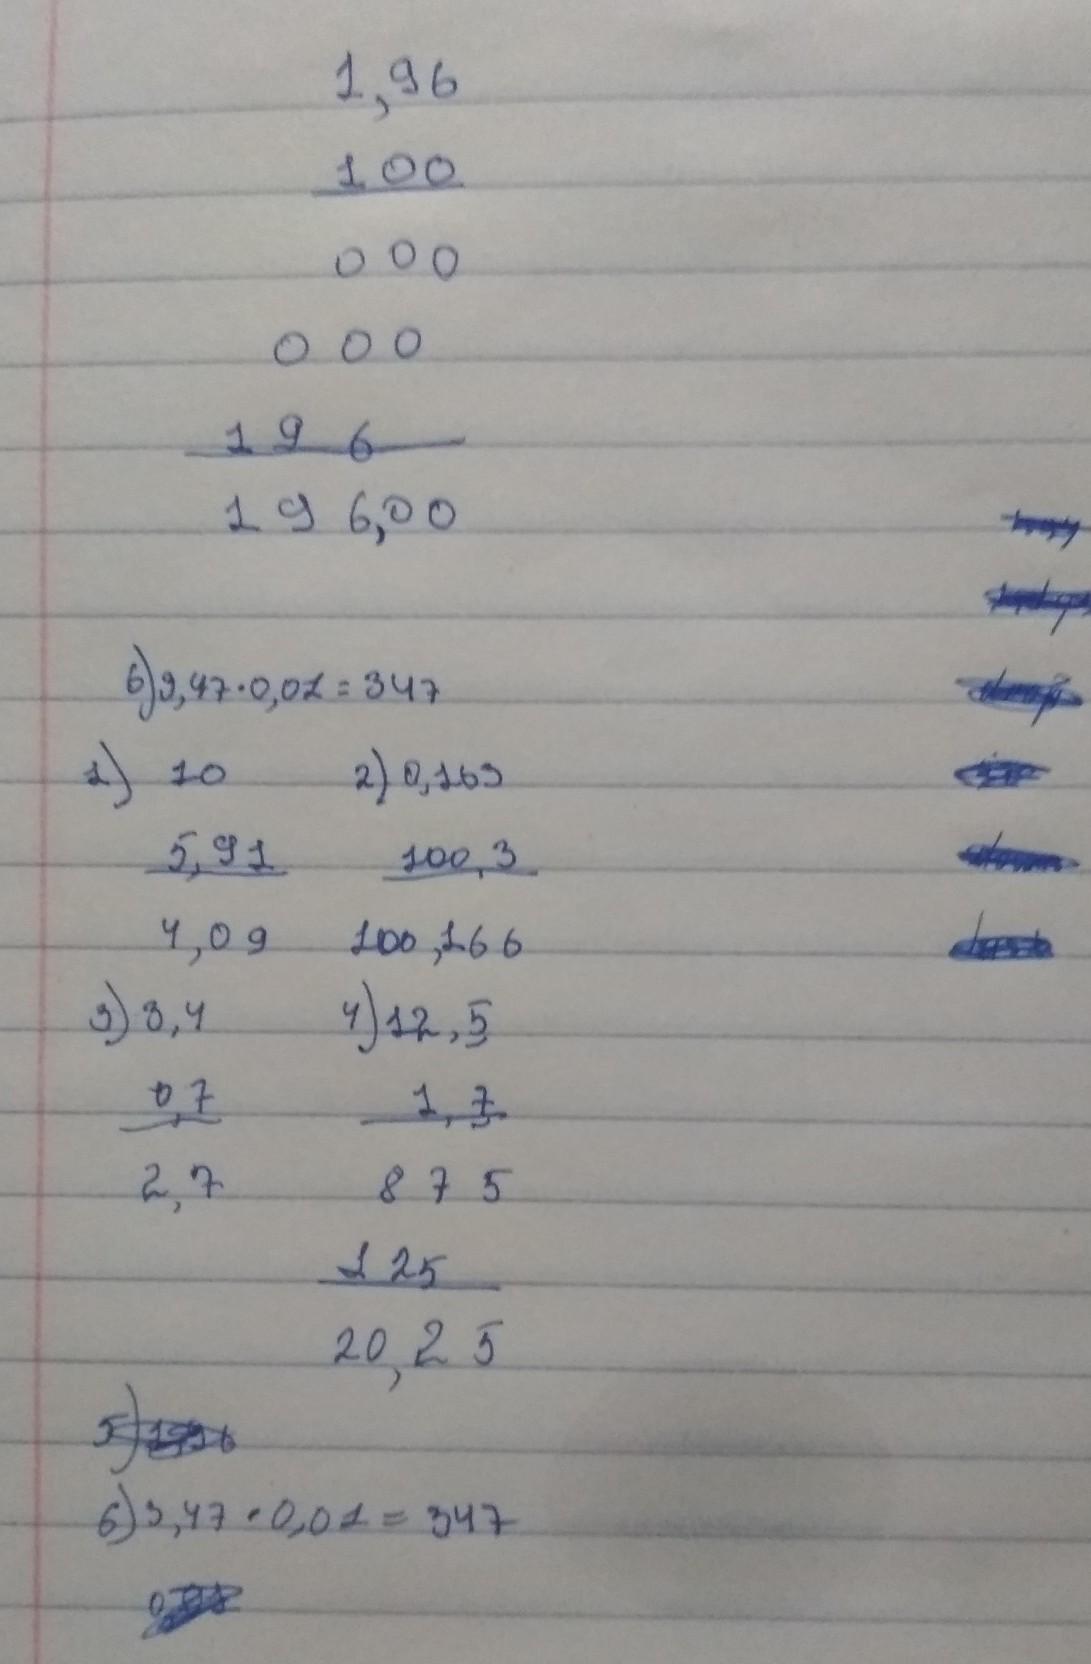 1,96
100
000
000
196
196,00
6) 3,47 · 0,01 = 347
1) 10 2) 0,163
5,91 100,3
4,09 100,166
3) 3,4 4) 12,5
0,7 1,7
2,7 875
125
20,25
5)
6) 3,47 · 0,01 = 347